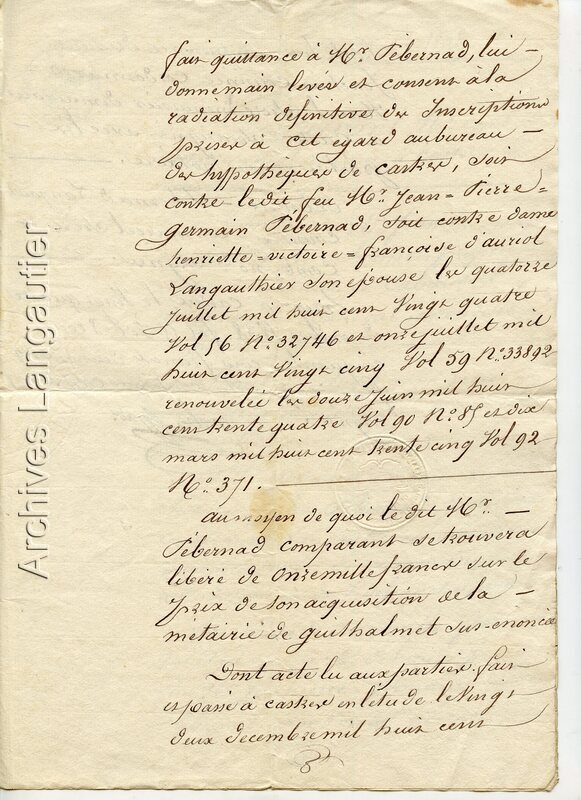 fait quittance à Mr. Pébernad, lui
donne main levée et consent à la
radiation définitive des Inscriptions
prises à cet égard au bureau
des hypothèques de castres, soit
contre le dit feu Mr. Jean = Pierre =
germain Pébernad, soit contre dame
henriette = victoire = françoise d'auriol
Langauthier son épouse les quatorze
juillet mil huit cent Vingt quatre
Vol 56 No. 32746 et onze juillet mil
huit cent Vingt cinq Vol 59 No. 33892
renouvelée les douze Juin mil huit
cent trente quatre Vol 90 No. 85 et dix
mars mil huit cent trente cinq Vol 92
No. 371.
au moyen de quoi le dit Mr.
Pébernad comparant se trouvera
libéré de onze mille francs sur le
prix de son acquisition de la
métairie de guithalmet sus-enoncée
Dont acte lu aux parties fait
et passé à castres en l'étude le Vingt
deux decembre mil huit cent
Archives Langautier